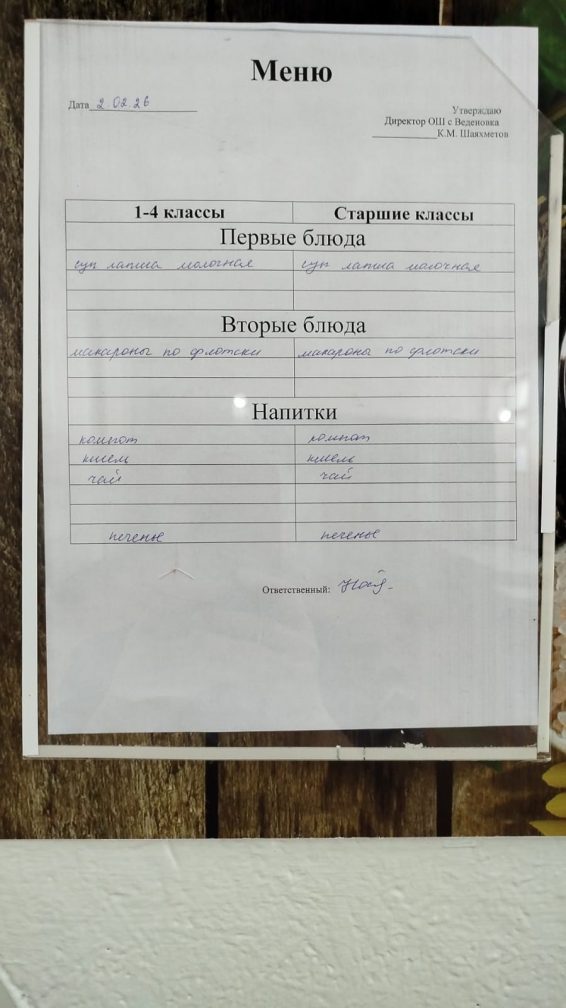 Меню
Дата 2.02.26
Утверждаю
Директор ОШ с Веденовка
____________К.М. Шаяхметов
1-4 классы Старшие классы
Первые блюда
суп лапша молочная суп лапша молочная
Вторые блюда
макароны по флотски макароны по флотски
Напитки
компот компот
кисель кисель
чай чай
печенье печенье
Ответственный: